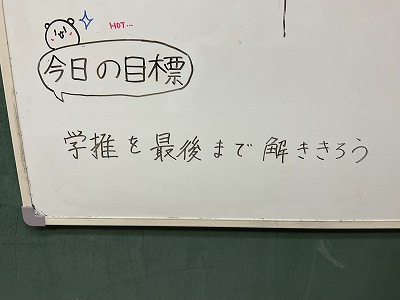 HOT...
今日の目標
学推を最後まで解ききろう